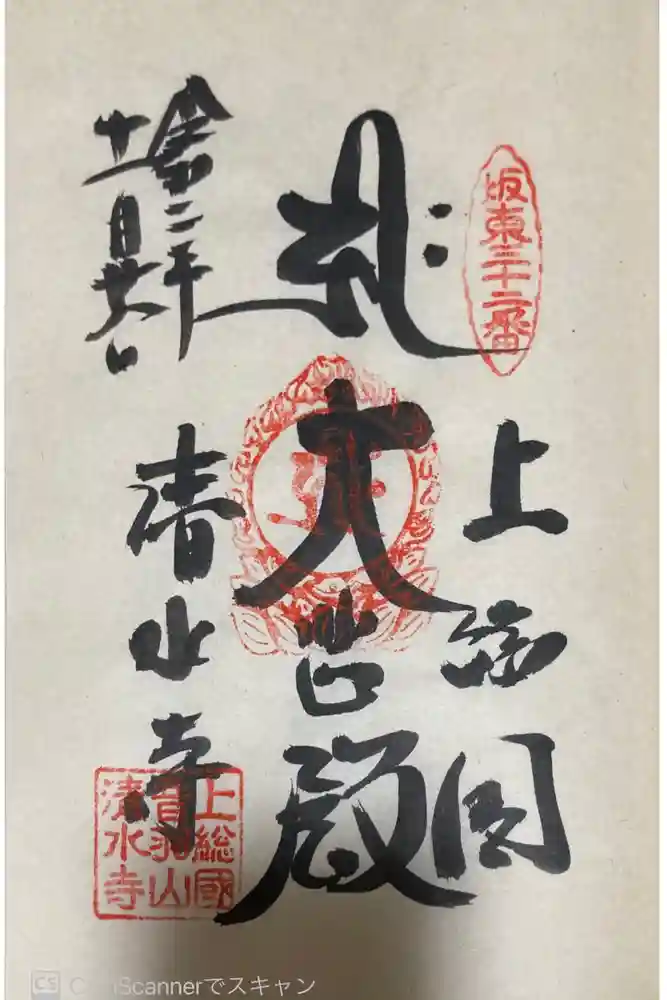 坂東三十二番
上総国
大悲殿
清水寺
令和二年
十一月
上総國
音羽山
清水寺
CS CamScannerでスキャン